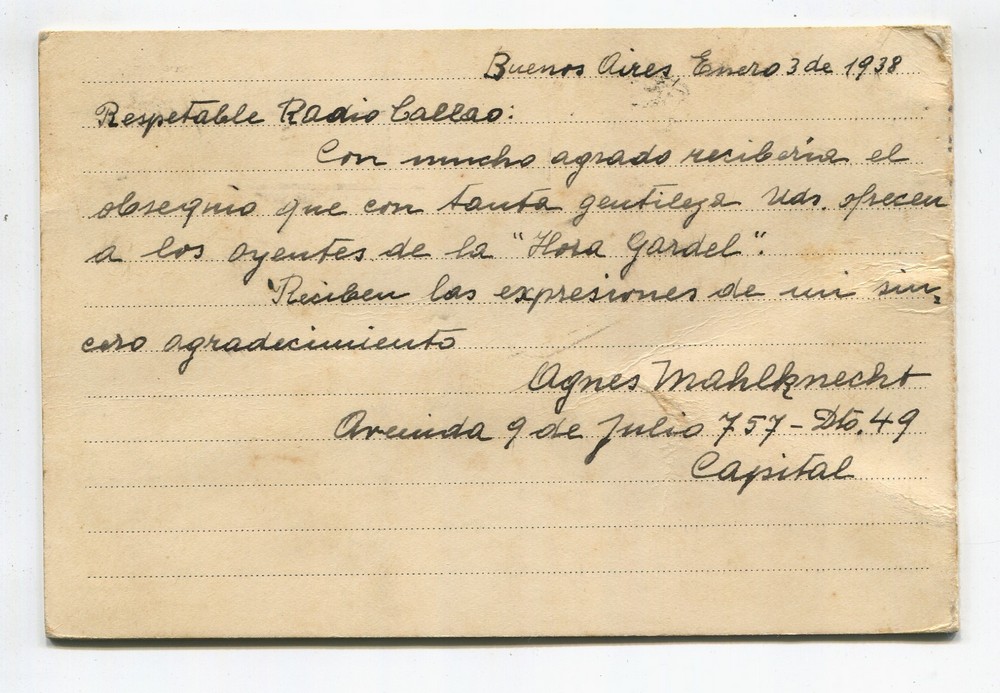 Buenos Aires Enero 3 de 1938
Respetable Radio Callao:
Con mucho agrado recibería el
obsequio que con tanta gentileza Uds. ofrecen
a los oyentes de la "Hora Gardel".
Reciben las expresiones de mi sin=
cero agradecimiento
Agnes Mahlknecht
Avenida 9 de Julio 757 - Dto. 49
Capital